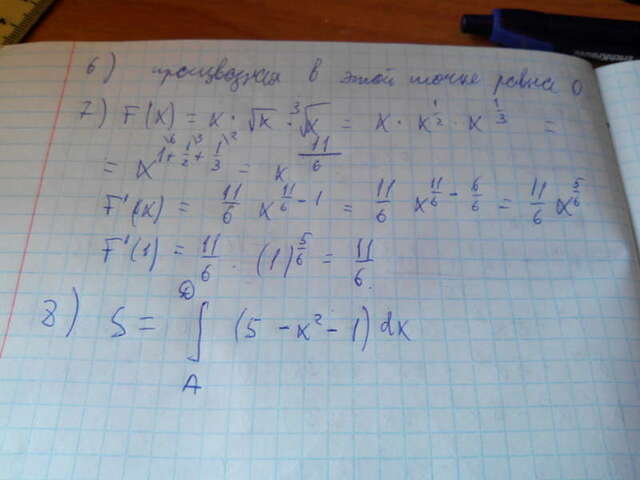 6) производная в этой точке равна 0
7) F(x) = x · √x · ∛x = x · x^{1/2} · x^{1/3} =
= x^{1\6 + 1/2\3 + 1/3\2} = x^{11/6}
F'(x) = 11/6 x^{11/6 - 1} = 11/6 x^{11/6 - 6/6} = 11/6 x^{5/6}
F'(1) = 11/6 · (1)^{5/6} = 11/6.
8) S = ∫_A^D (5 - x² - 1) dx